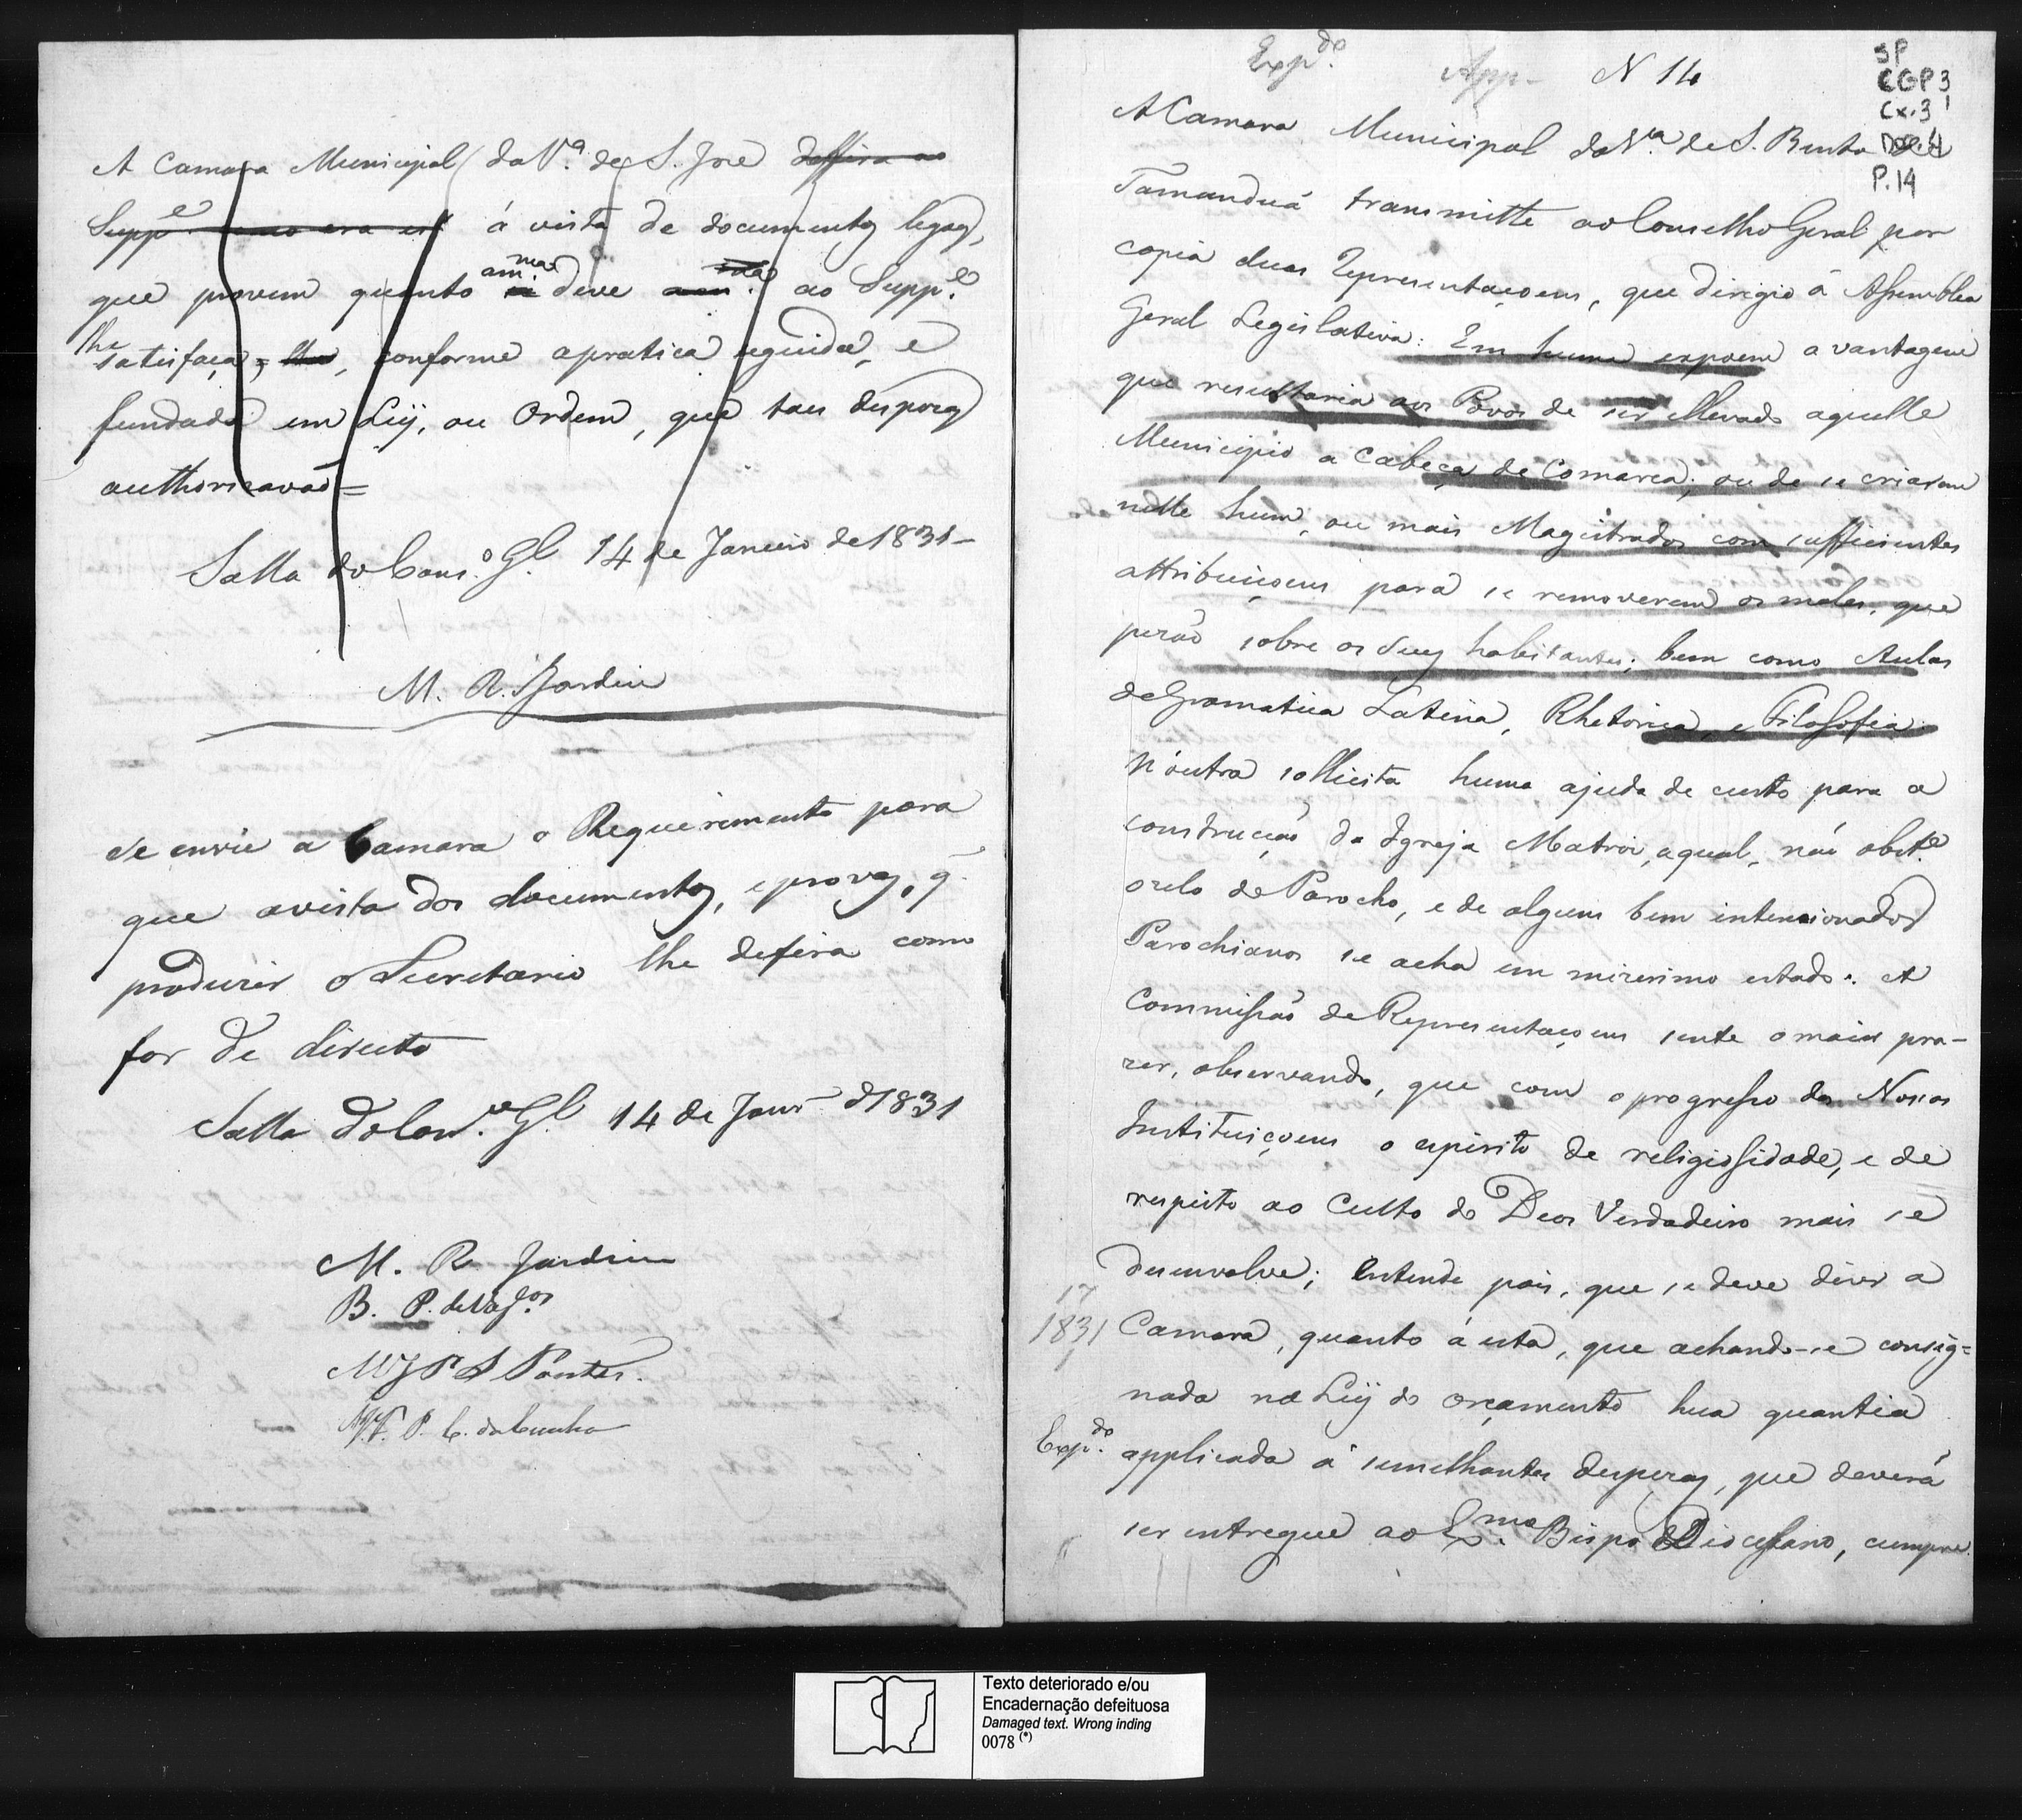 A Camara Municipal da V.ª de S. Jose deffira ao
Supp.e como era est á vista de documentos legaes,
que provem quanto a mesma deve ao Supp.e
lhe satisfaça, conforme a pratica seguida, e
fundada em Ley, ou Ordem, que taes despezas
authorisavaõ=
Salla do Cons.o G.l 14 de Janeiro de 1831-
M. R. Jardim
Se envie a Camara o Requerimento para
que a vista dos documentos, e provas, q.
produzir o Secretario lhe defira como
for de direito
Salla do Con.o G.l 14 de Janr.o d 1831
M. R. Jardim
B. P. de Vas.os
M J P S Pontes.
P. C. da Cunha
Exp.do App- N 14
SP
CGP 3
Cx. 3
Doc. 4
P. 14
A Camara Municipal da V.ª de S. Bento de
Tamanduá transmitte ao Conselho Geral por
copia duas Representaçoens, que dirigio á Assemblea
Geral Legislativa: Em huma expoem a vantagem
que resultaria aos Povos de ser ellevado aquelle
Municipio a Cabeça de Comarca, ou de se criarem
nelle hum, ou mais Magistrados com sufficientes
attribuiçoens para se removerem os males, que
pezaõ sobre os Seus habitantes; bem como Aulas
de Gramatica Latina, Rhetorica, e Filosofia:
N'outra sollicita huma ajuda de custo para a
construcçaõ da Igreja Matriz, a qual, naõ obst.e
o zelo do Parocho, e de alguns bem intencionados
Parochianos se acha em mizerimo estado. A
Commissaõ de Representaçoens sente o maior pra-
zer, observando, que com o progresso das Novas
Instituiçoens o espirito de religiosidade, e de
respeito ao Culto do Deos Verdadeiro mais se
desenvolve; entende pois, que se deve dizer a
17
1831 Camara, quanto á esta, que achando-se consig=
nada na Ley do Orçamento hua quantia
Exp.do applicada á semelhantes despezas, que deverá
ser entregue ao Ex.mo Bispo Diocesano, cumpre
Texto deteriorado e/ou
Encadernação defeituosa
Damaged text. Wrong inding
0078 (*)